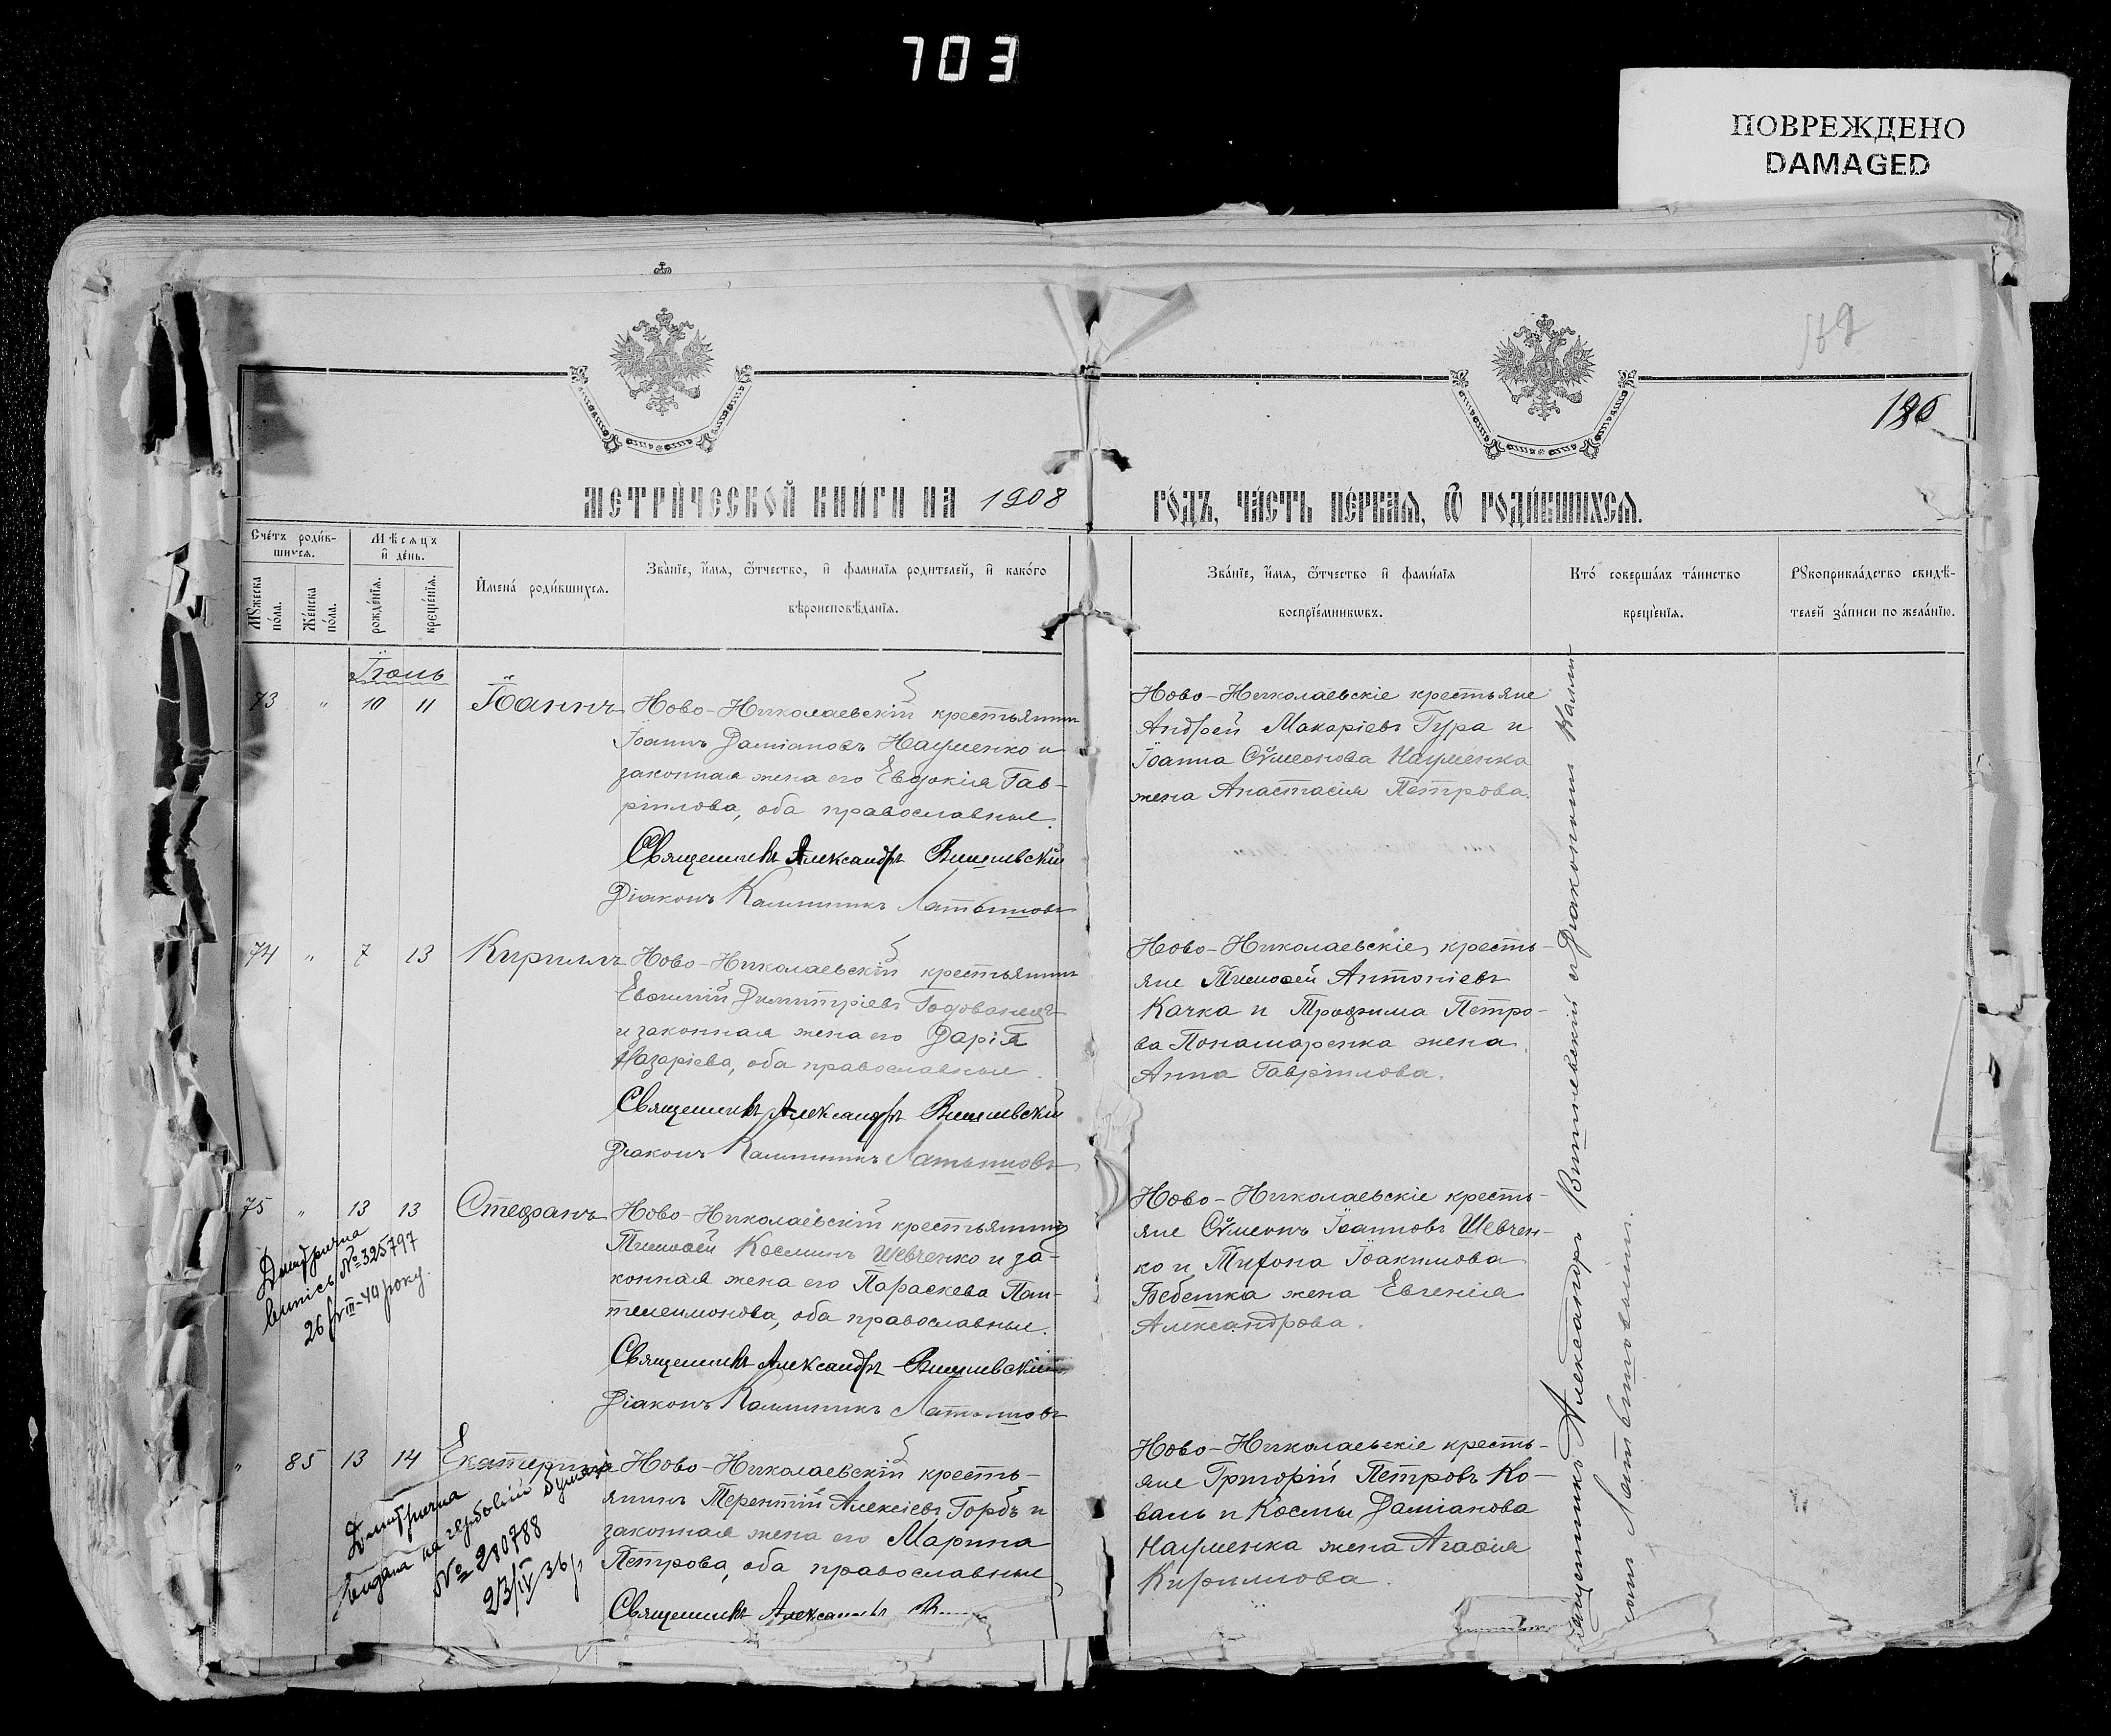 703
ПОВРЕЖДЕНО
DAMAGED
126
МЕТРИ́ЧЕСКОЙ КНИ́ГИ НА 1908
ГО́ДЪ, ЧА́СТЬ ПЕ́РВАЯ, Ѿ РОДИ́ВШИХСЯ.
Сче́тъ роди́в-
шихся.
Мѣсяцъ
и де́нь.
Мꙋжеска
по́ла.
Же́нска
по́ла.
рожде́нїя.
креще́нїя.
Имена́ роди́вшихся.
Зва́нїе, и́мя, ѻ́тчество, и фами́лїя роди́телей, и како́го
вѣроисповѣ́данїя.
Зва́нїе, и́мя, ѻ́тчество и фами́лїя
воспрїе́мникѡвъ.
Кто́ соверша́лъ та́инство
креще́нїя.
Рꙋкоприкла́дство свидѣ́-
телей за́писи по жела́нїю.
Іюль
73 " 10 11 Іоаннъ
Ново-Николаевскій крестьянинъ
Іоаннъ Даміановъ Науменко и
законная жена его Евдокія Гав-
ріилова, оба православные.
Священникъ Александръ Вишневскій
Діаконъ Каллиникъ
Ново-Николаевскіе крестьяне
Андрей Макаріевъ Гура и
Іоанна Сѵмеонова Науменка
жена Анастасія Петрова.
74 " 7 13 Кириллъ
Ново-Николаевскій крестьянинъ
Евѳимій Димитріевъ Годованецъ
и законная жена его Дарія
Назаріева, оба православные.
Священникъ Александръ Вишневскій
Діаконъ Каллиникъ
Ново-Николаевскіе кресть-
яне Тимоѳей Антоніевъ
Качка и Трофима Петро-
ва Понамаренка жена
Анна Гавріилова.
75 " 13 13 Стефанъ
Ново-Николаевскій крестьянинъ
Тимоѳей Косминъ Шевченко и за-
конная жена его Параскева Пан-
телеимонова, оба православные.
Священникъ Александръ Вишневскій
Діаконъ Каллиникъ
№ 325797
26/VIII-40 року.
Ново-Николаевскіе кресть-
яне Сѵмеонъ Іоанновъ Шевчен-
ко и Тихона Іоакимова
Бебешка жена Евгенія
Александрова.
" 85 13 14 Екатерина
Ново-Николаевскій кресть-
янинъ Терентій Алексіевъ Горбъ и
законная жена его Марина
Петрова, оба православные
Священникъ Александръ
видана на гербовій
№ 280788
23/IV 36 р
Ново-Николаевскіе кресть-
яне Григорій Петровъ Ко-
валь и Космы Даміанова
Науменка жена Агаѳія
Кириллова.
Священникъ Александръ Вишневскій и Діакономъ